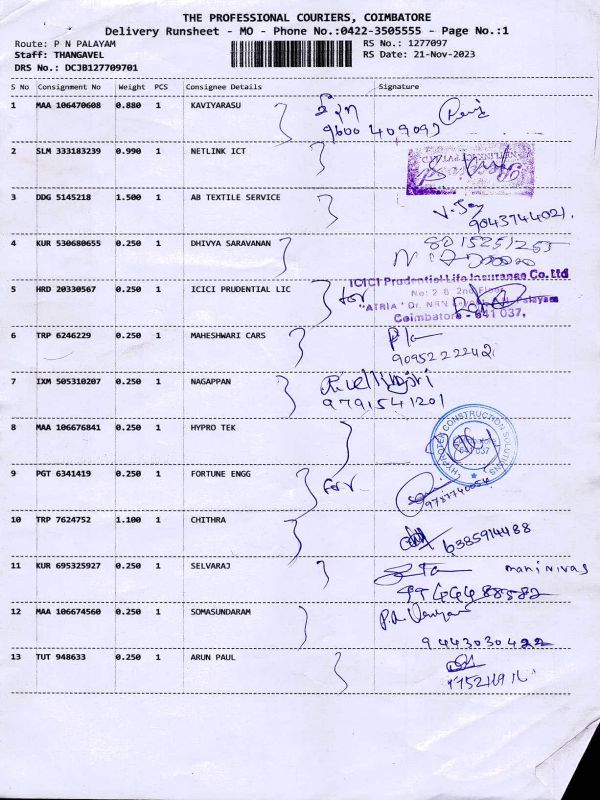 THE PROFESSIONAL COURIERS, COIMBATORE
Delivery Runsheet - MO - Phone No.:0422-3505555 - Page No.:1
Route: P N PALAYAM
RS No.: 1277097
Staff: THANGAVEL
RS Date: 21-Nov-2023
DRS No.: DCJB127709701
S No Consignment No Weight PCS Consignee Details Signature
1 MAA 106470608 0.880 1 KAVIYARASU
9600 409093
2 SLM 333183239 0.990 1 NETLINK ICT
3 DDG 5145218 1.500 1 AB TEXTILE SERVICE
9043744021.
4 KUR 530680655 0.250 1 DHIVYA SARAVANAN
8015251255
5 HRD 20330567 0.250 1 ICICI PRUDENTIAL LIC for
ICICI Prudential Life Insurance Co. Ltd
No: 2 B 2nd Floor
"ATRIA"
Coimbatore - 641 037.
6 TRP 6246229 0.250 1 MAHESHWARI CARS
9095222242
7 IXM 505310207 0.250 1 NAGAPPAN
9791541201
8 MAA 106676841 0.250 1 HYPRO TEK
HYPROTEK CONSTRUCTION SOLUTIONS
9 PGT 6341419 0.250 1 FORTUNE ENGG for
9787740054
10 TRP 7624752 1.100 1 CHITHRA
6385914488
11 KUR 695325927 0.250 1 SELVARAJ
maninivas
9944488582
12 MAA 106674560 0.250 1 SOMASUNDARAM
9443030422
13 TUT 948633 0.250 1 ARUN PAUL